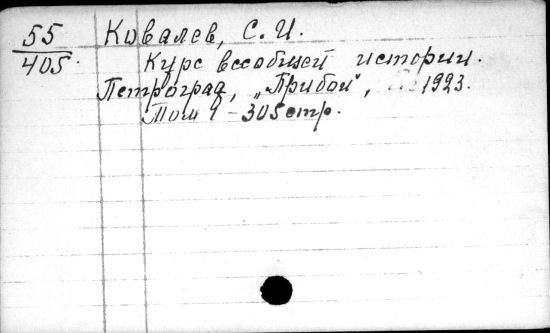 55
405.
Ковалев, С. И.
Курс всеобщей истории.
Петроград, „Прибой", 1923.
Том 1 – 305 стр.